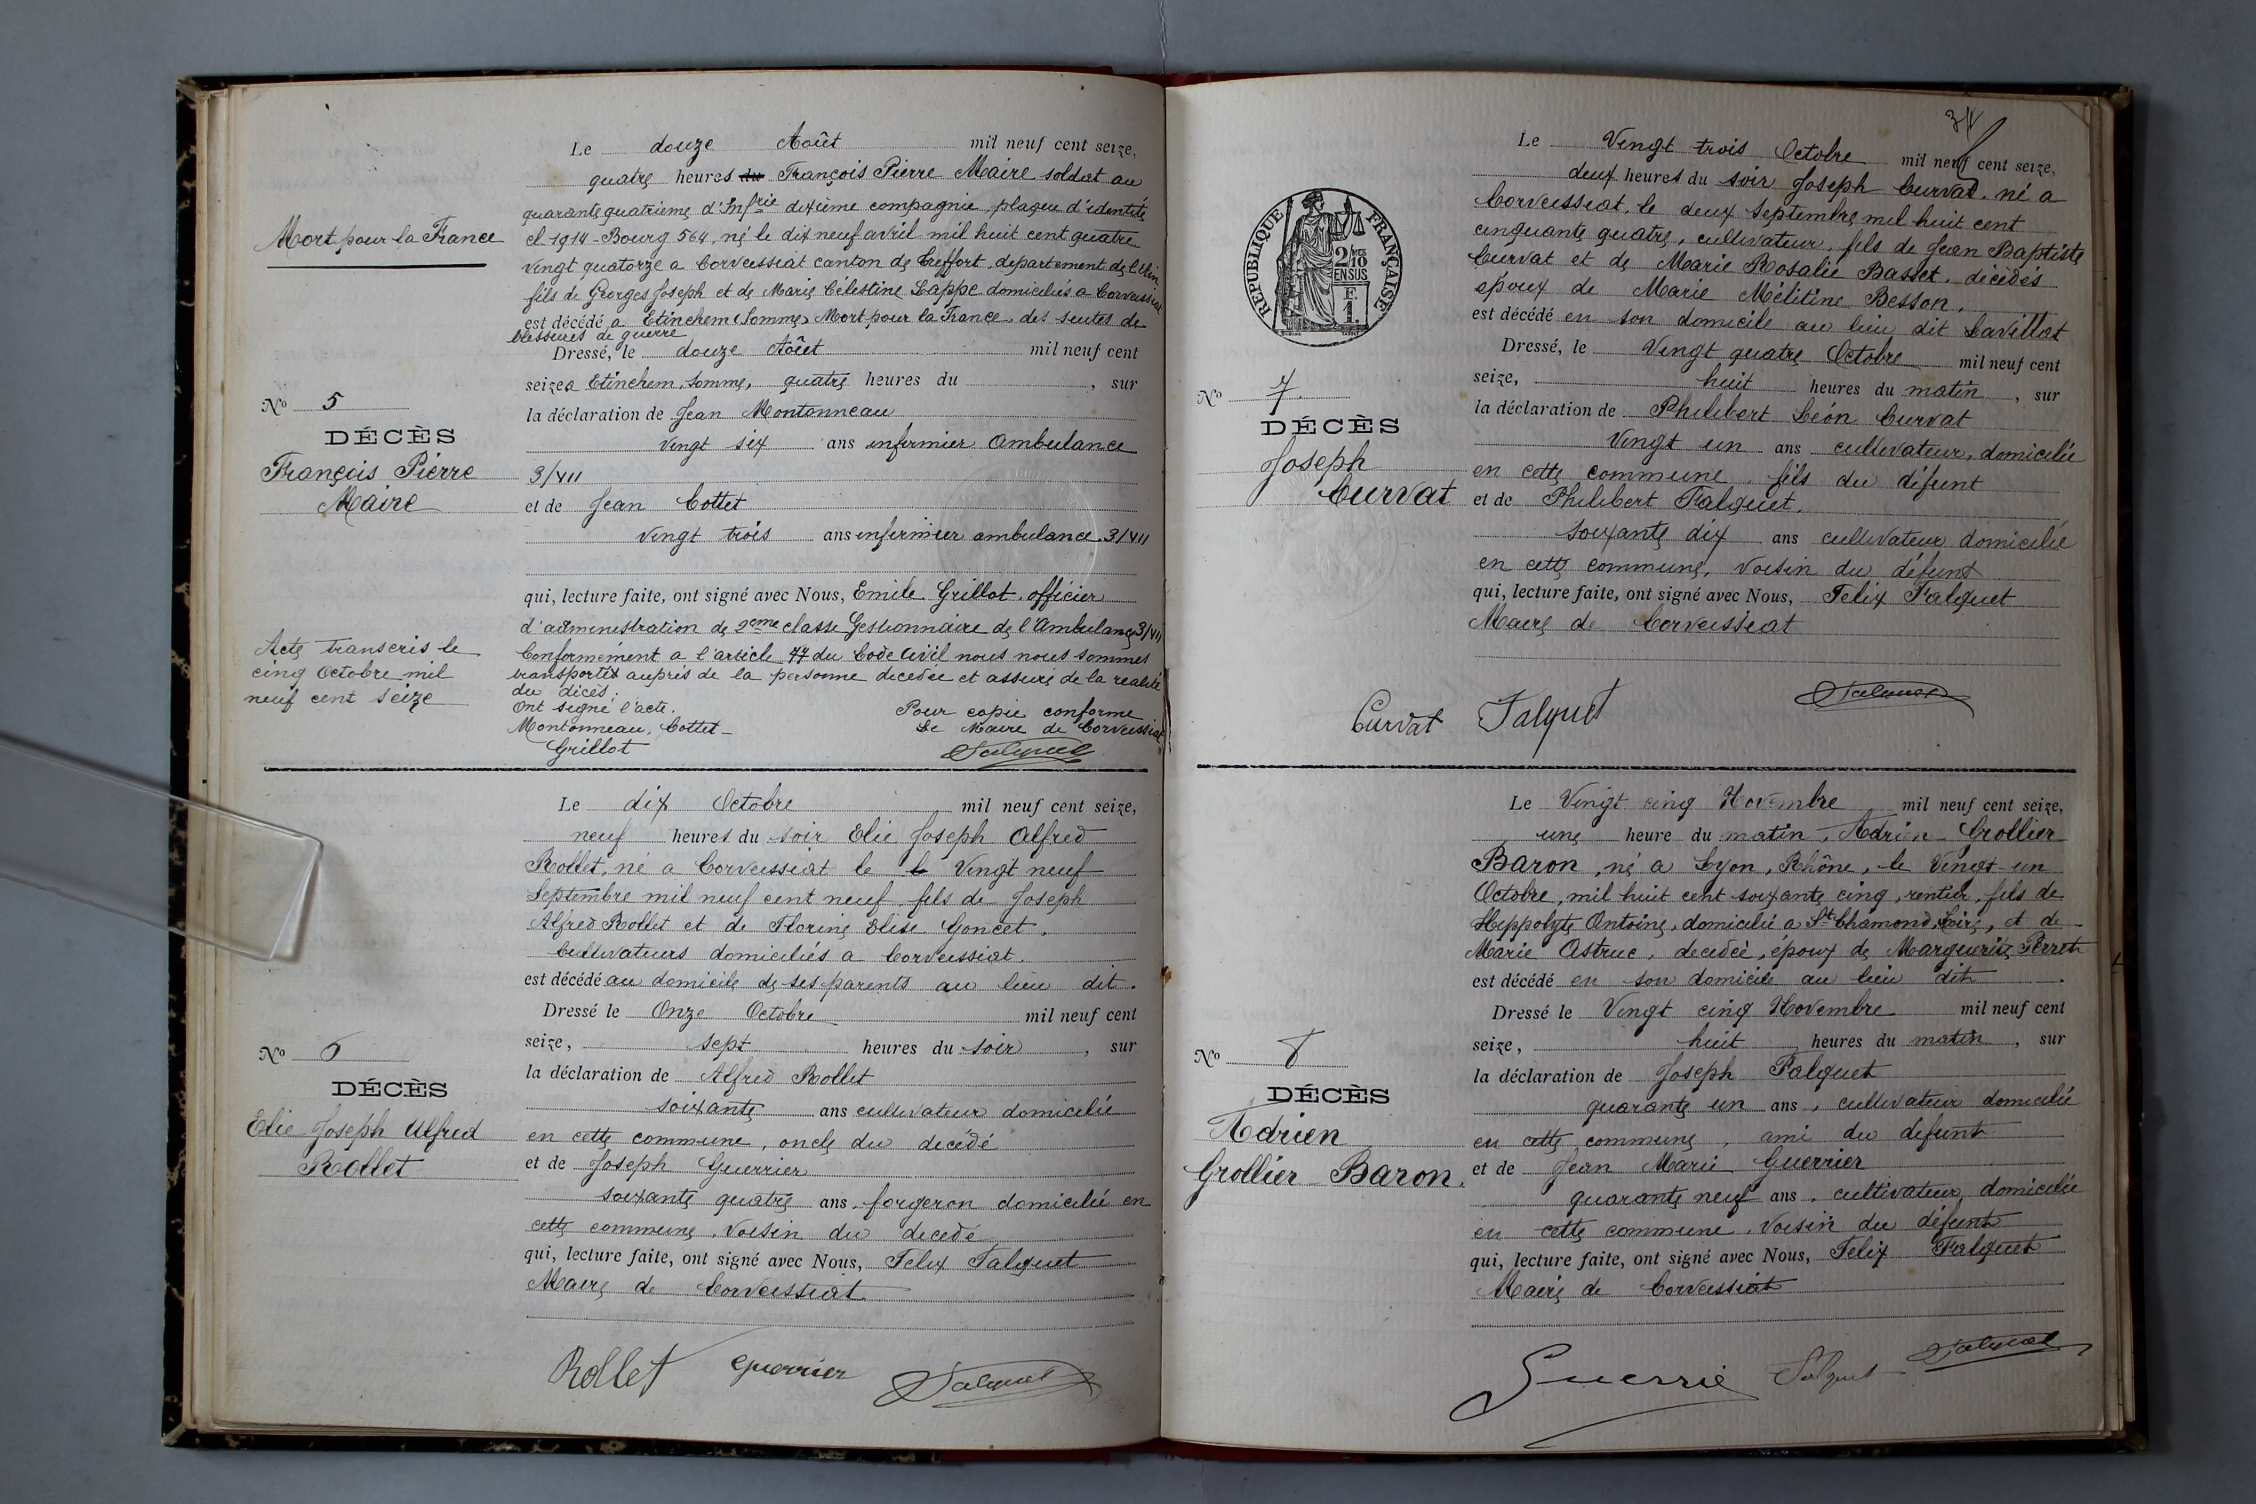 Le douze Août mil neuf cent seize,
quatre heures du François Pierre Maire soldat au
quarante quatrième d'Infrie dixième compagnie, plaque d'identité
cl 1914 - Bourg 564, né le dix neuf avril mil huit cent quatre
vingt quatorze a Corveissiat canton de Treffort, departement de l'Ain
fils de Georges Joseph et de Marie Célestine Lappe domiciliés a Corveissiat
est décédé a Etinehem (Somme) Mort pour la France, des suites de
blessures de guerre
Mort pour la France
Dressé, le douze Août mil neuf cent
seize a Etinehem, Somme, quatre heures du , sur
la déclaration de Jean Montonneau
vingt six ans infirmier Ambulance
3/VII
et de Jean Cottet
vingt trois ans infirmier ambulance 3/VII
No 5
DÉCÈS
François Pierre
Maire
qui, lecture faite, ont signé avec Nous, Emile Grillot, officier
d'administration de 2eme classe Gestionnaire de l'Ambulance 3/VII
Conformément a l'article 77 du Code Civil nous nous sommes
transportés auprés de la personne décédée et assuré de la réalité
du décés.
Ont signé l'acte.
Montonneau, Cottet
Grillot
Pour copie conforme
Le Maire de Corveissiat
Falquet
Acte transcris le
cinq Octobre mil
neuf cent seize
Le dix Octobre mil neuf cent seize,
neuf heures du soir Elie Joseph Alfred
Rollet, né a Corveissiat le Vingt neuf
Septembre mil neuf cent neuf, fils de Joseph
Alfred Rollet et de Florine Elise Goncet.
Cultivateurs domiciliés a Corveissiat.
est décédé au domicile de ses parents au lieu dit.
Dressé le Onze Octobre mil neuf cent
seize, sept heures du soir , sur
la déclaration de Alfred Rollet
soixante ans cultivateur domicilié
en cette commune, oncle du decédé
et de Joseph Guerrier
soixante quatre ans, forgeron domicilié en
cette commune, voisin du decedé
qui, lecture faite, ont signé avec Nous, Felix Falquet
Maire de Corveissiat
No 6
DÉCÈS
Elie Joseph Alfred
Rollet
Rollet Guerrier Falquet
34
Le Vingt trois Octobre mil neuf cent seize,
deux heures du soir Joseph Curvat, né a
Corveissiat, le deux Septembre mil huit cent
cinquante quatre, cultivateur, fils de Jean Baptiste
Curvat et de Marie Rosalie Basset, décédés
époux de Marie Mélitine Besson,
est décédé en son domicile au lieu dit Lavillat
Dressé, le Vingt quatre Octobre mil neuf cent
seize, huit heures du matin , sur
la déclaration de Philibert Léon Curvat
Vingt un ans cultivateur, domicilié
en cette commune, fils du défunt
et de Philibert Falquet,
soixante dix ans cultivateur domicilié
en cette commune, voisin du défunt
qui, lecture faite, ont signé avec Nous, Felix Falquet
Maire de Corveissiat
RÉPUBLIQUE FRANÇAISE
2/10
EN SUS
F.
1.
No 7
DÉCÈS
Joseph
Curvat
Curvat Falquet Falquet
Le Vingt cinq Novembre mil neuf cent seize,
une heure du matin, Adrien Grollier
Baron, né a Lyon, Rhône, le Vingt un
Octobre, mil huit cent soixante cinq, rentier, fils de
Hyppolyte Antoine, domicilié a St Chamond, Loire, et de
Marie Astruc, decedeé, époux de Marguerite Perret
est décédé en son domicile au lieu dit
Dressé le Vingt cinq Novembre mil neuf cent
seize, huit heures du matin , sur
la déclaration de Joseph Falquet
quarante un ans, cultivateur domicilié
en cette commune, ami du defunt
et de Jean Marie Guerrier
quarante neuf ans, cultivateur, domicilié
en cette commune, voisin du défunt
qui, lecture faite, ont signé avec Nous, Felix Falquet
Maire de Corveissiat
No 8
DÉCÈS
Adrien
Grollier Baron.
Guerrié Falquet Falquet